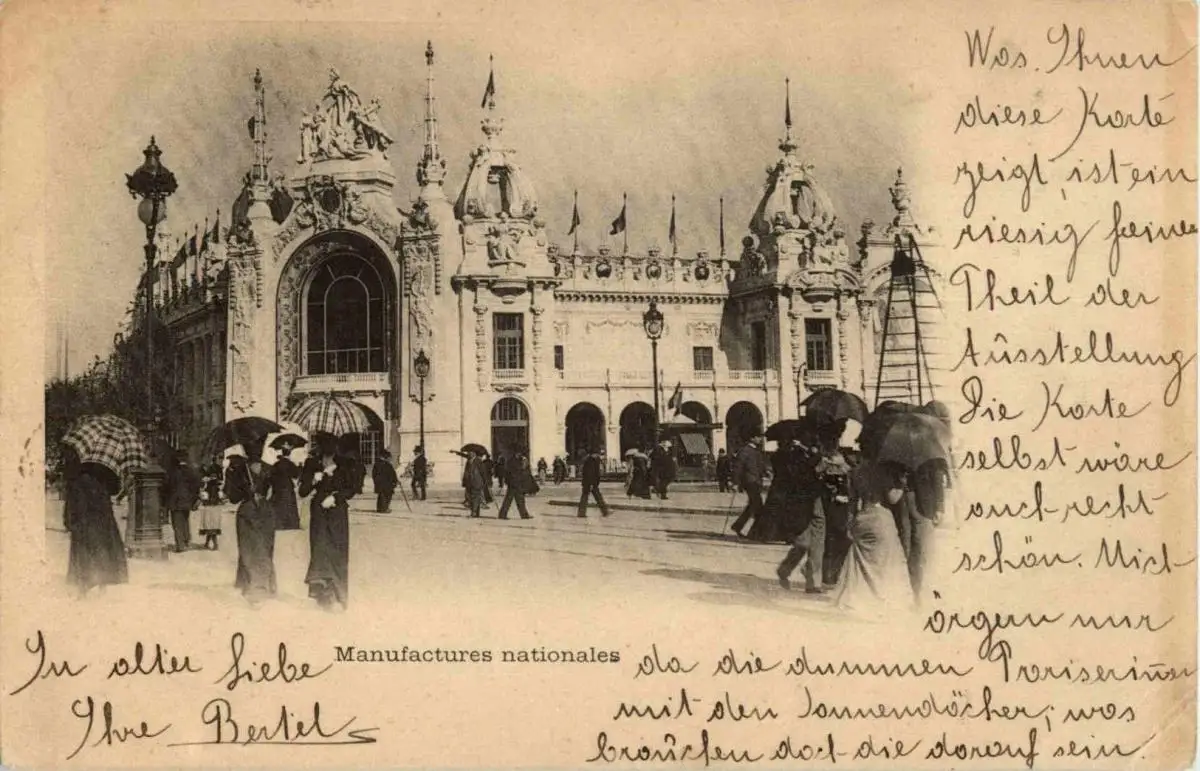 Was Ihnen
diese Karte
zeigt, ist ein
riesig feiner
Theil der
Ausstellung
Die Karte
selbst wäre
auch recht
schön. Mich
ärgern nur
da die dummen Pariserinnen
mit den Sonnendächer; was
brauchen doch die darauf sein.
Manufactures nationales
In alter Liebe
Ihre Bertel